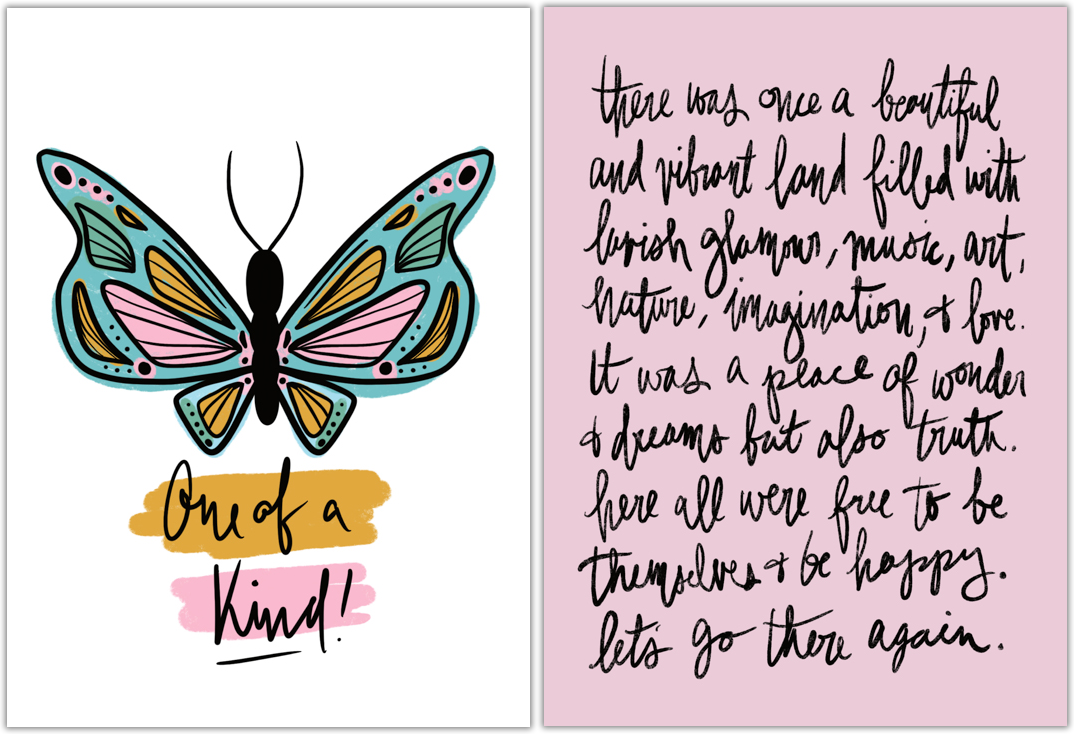 One of a
Kind!
there was once a beautiful
and vibrant land filled with
lavish glamour, music, art,
nature, imagination, & love.
It was a place of wonder
& dreams but also truth.
here all were free to be
themselves & be happy.
let's go there again.